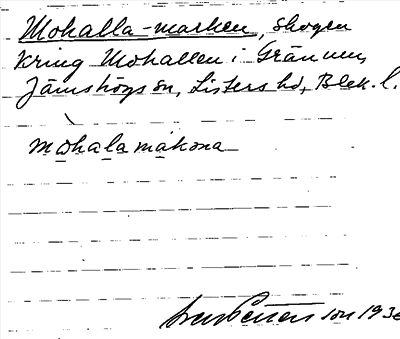 Mohalla-marken, skogen
kring Mohallen i Grännum,
Jämshögs sn, Listers hd, Blek. l.
mohalamakona